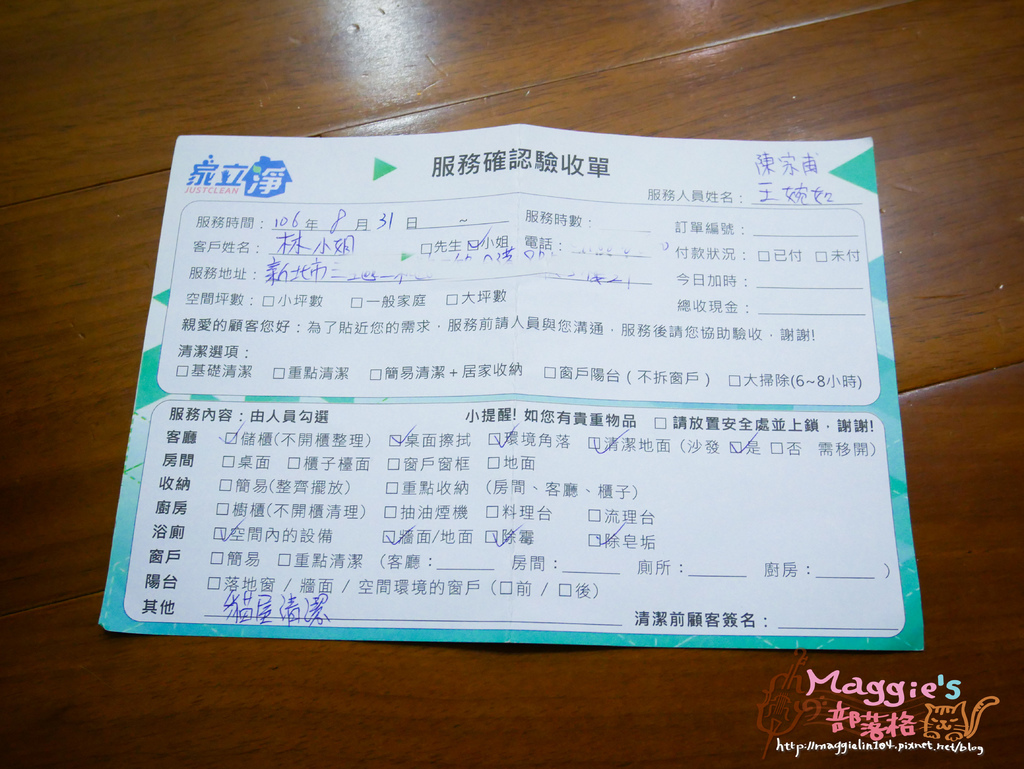 家立淨
JUSTCLEAN
服務確認驗收單
陳家甫
服務人員姓名：王婉如
服務時間：106年 8月 31日 ~ 服務時數： 訂單編號：
客戶姓名：林小姐 □先生 ☑小姐 電話： 付款狀況：□已付 □未付
服務地址：新北市三 今日加時：
空間坪數：□小坪數 □一般家庭 □大坪數 總收現金：
親愛的顧客您好：為了貼近您的需求，服務前請人員與您溝通，服務後請您協助驗收，謝謝!
清潔選項：
□基礎清潔 □重點清潔 □簡易清潔+居家收納 □窗戶陽台（不拆窗戶） □大掃除(6~8小時)
服務內容：由人員勾選 小提醒! 如您有貴重物品 □請放置安全處並上鎖，謝謝!
客廳 ☑儲櫃(不開櫃整理) ☑桌面擦拭 ☑環境角落 ☑清潔地面（沙發 ☑是 □否 需移開）
房間 □桌面 □櫃子檯面 □窗戶窗框 □地面
收納 □簡易(整齊擺放) □重點收納（房間、客廳、櫃子）
廚房 □櫥櫃(不開櫃清理) □抽油煙機 □料理台 □流理台
浴廁 ☑空間內的設備 ☑牆面/地面 ☑除霉 ☑除皂垢
窗戶 □簡易 □重點清潔（客廳：______ 房間：______ 廁所：______ 廚房：______ ）
陽台 □落地窗 / 牆面 / 空間環境的窗戶（□前 / □後）
其他 貓屋清潔 清潔前顧客簽名：
Maggie's
部落格
http://maggielin104.pixnet.net/blog